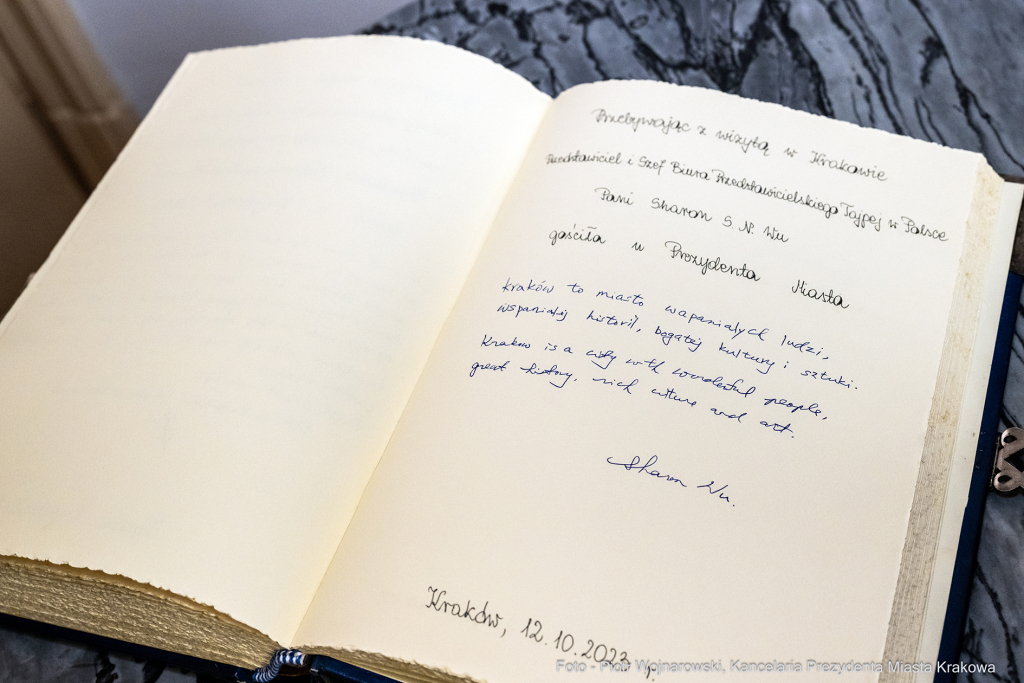 Przebywając z wizytą w Krakowie
Przedstawiciel i Szef Biura Przedstawicielskiego Tajpej w Polsce
Pani Sharon S. N. Wu
gościła u Prezydenta Miasta
Kraków to miasto wspaniałych ludzi,
wspaniałej historii, bogatej kultury i sztuki.
Krakow is a city with wonderful people,
great history, rich culture and art.
Sharon Wu.
Kraków, 12.10.2023 r.
Foto - Piotr Wojnarowski, Kancelaria Prezydenta Miasta Krakowa